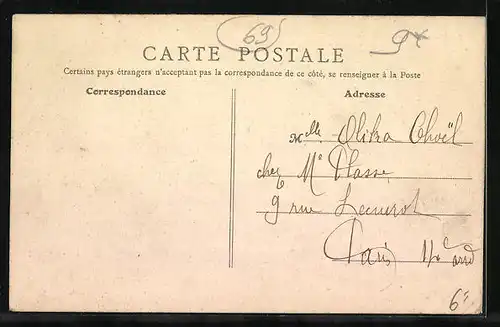 69
9*
CARTE POSTALE
Certains pays étrangers n'acceptant pas la correspondance de ce côté, se renseigner à la Poste
Correspondance
Adresse
Mlle Olika Choël
chez Me Plasse
9 rue
Paris arrd